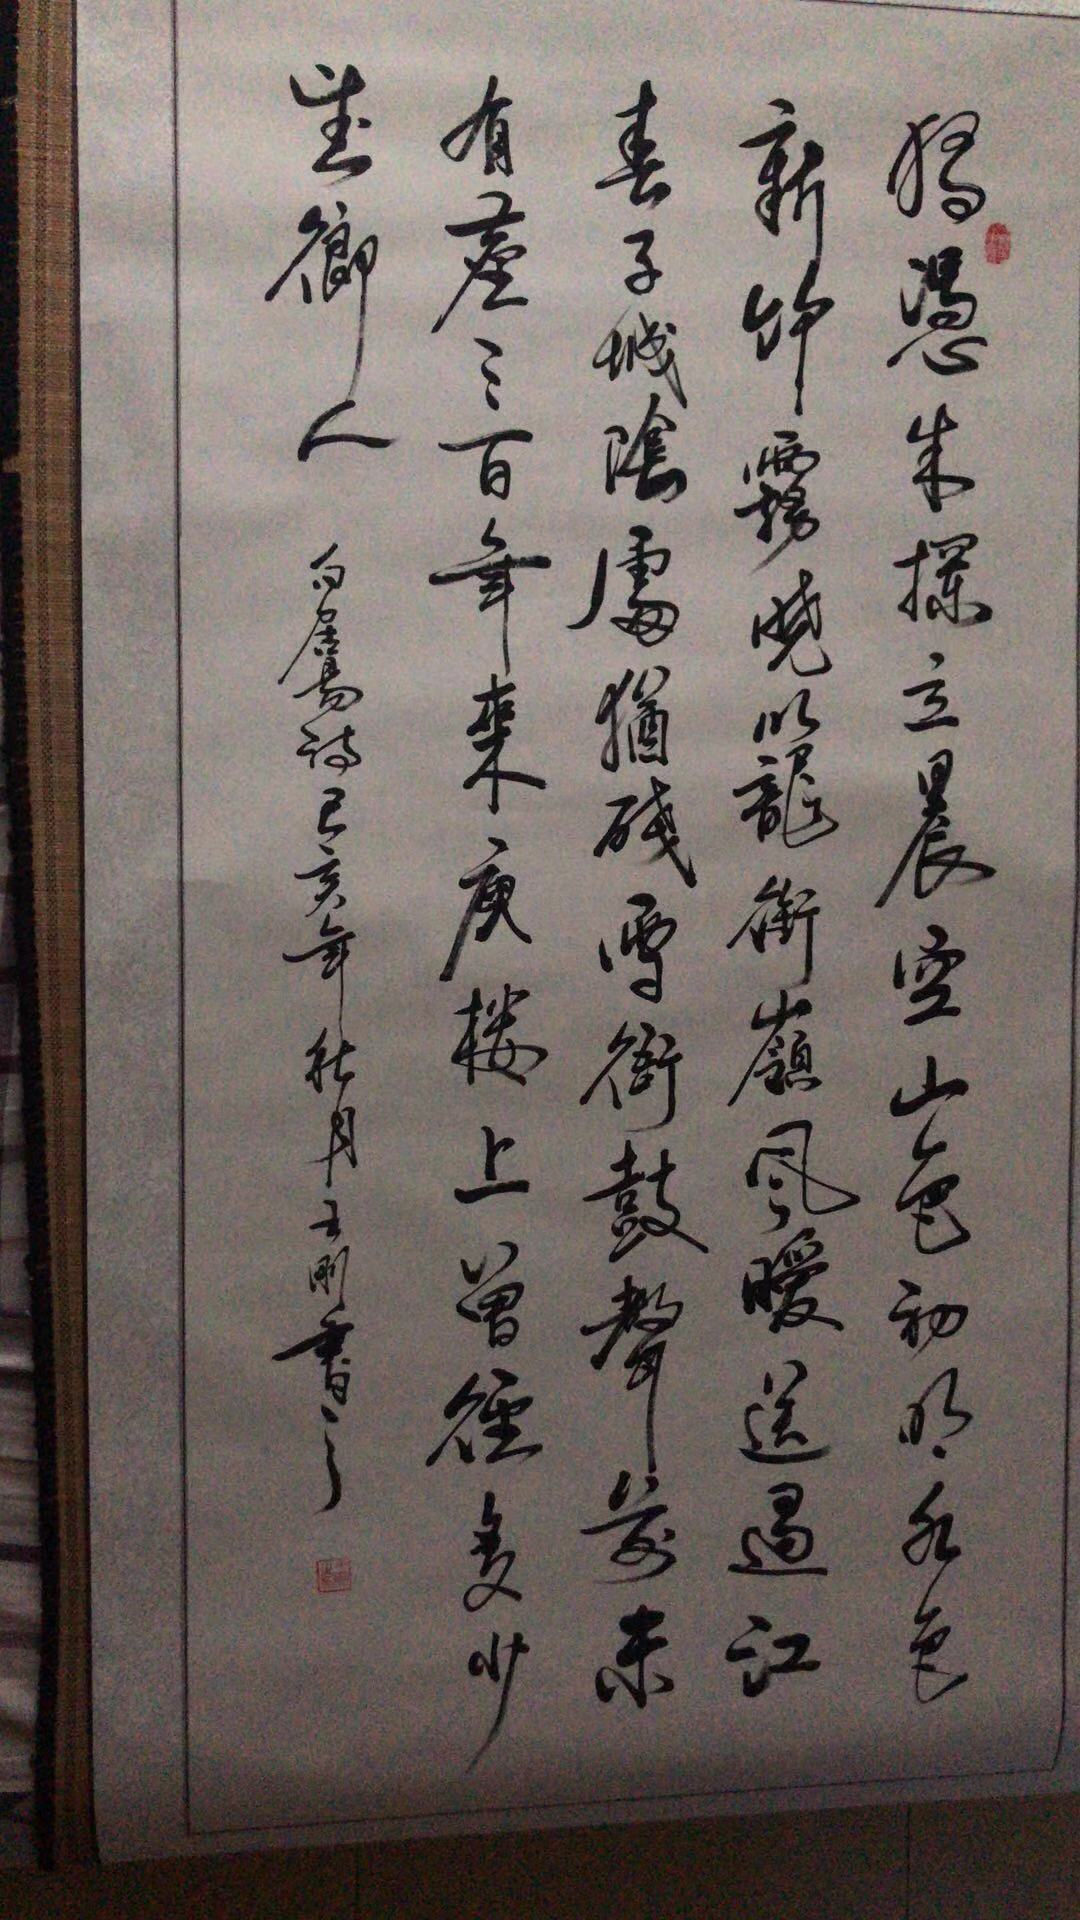 獨憑朱檻立晨空山色初明水色
新竹霧曉籠銜嶺風暖送過江
春子城陰處猶殘雪衙鼓聲前未
有塵三百年來庾樓上曾經多少
望鄉人
白居易詩己亥年秋月王剛書